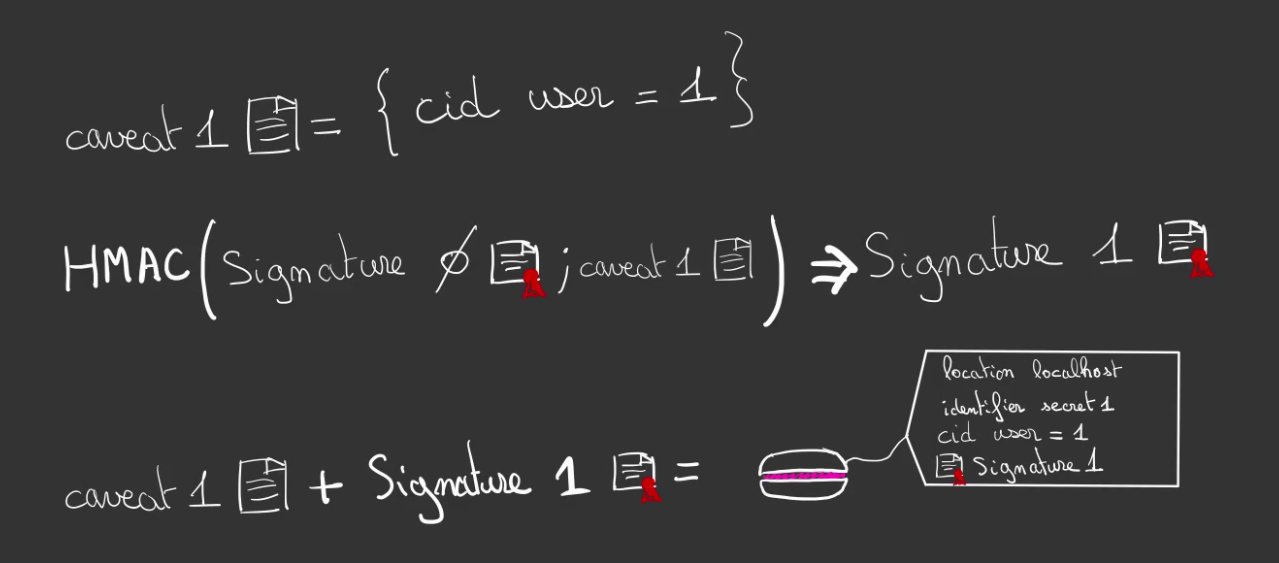 caveat 1 = { cid user = 1 }
HMAC ( Signature ∅ ; caveat 1 ) ⇒ Signature 1
caveat 1 + Signature 1 =
location localhost
identifier secret 1
cid user = 1
Signature 1